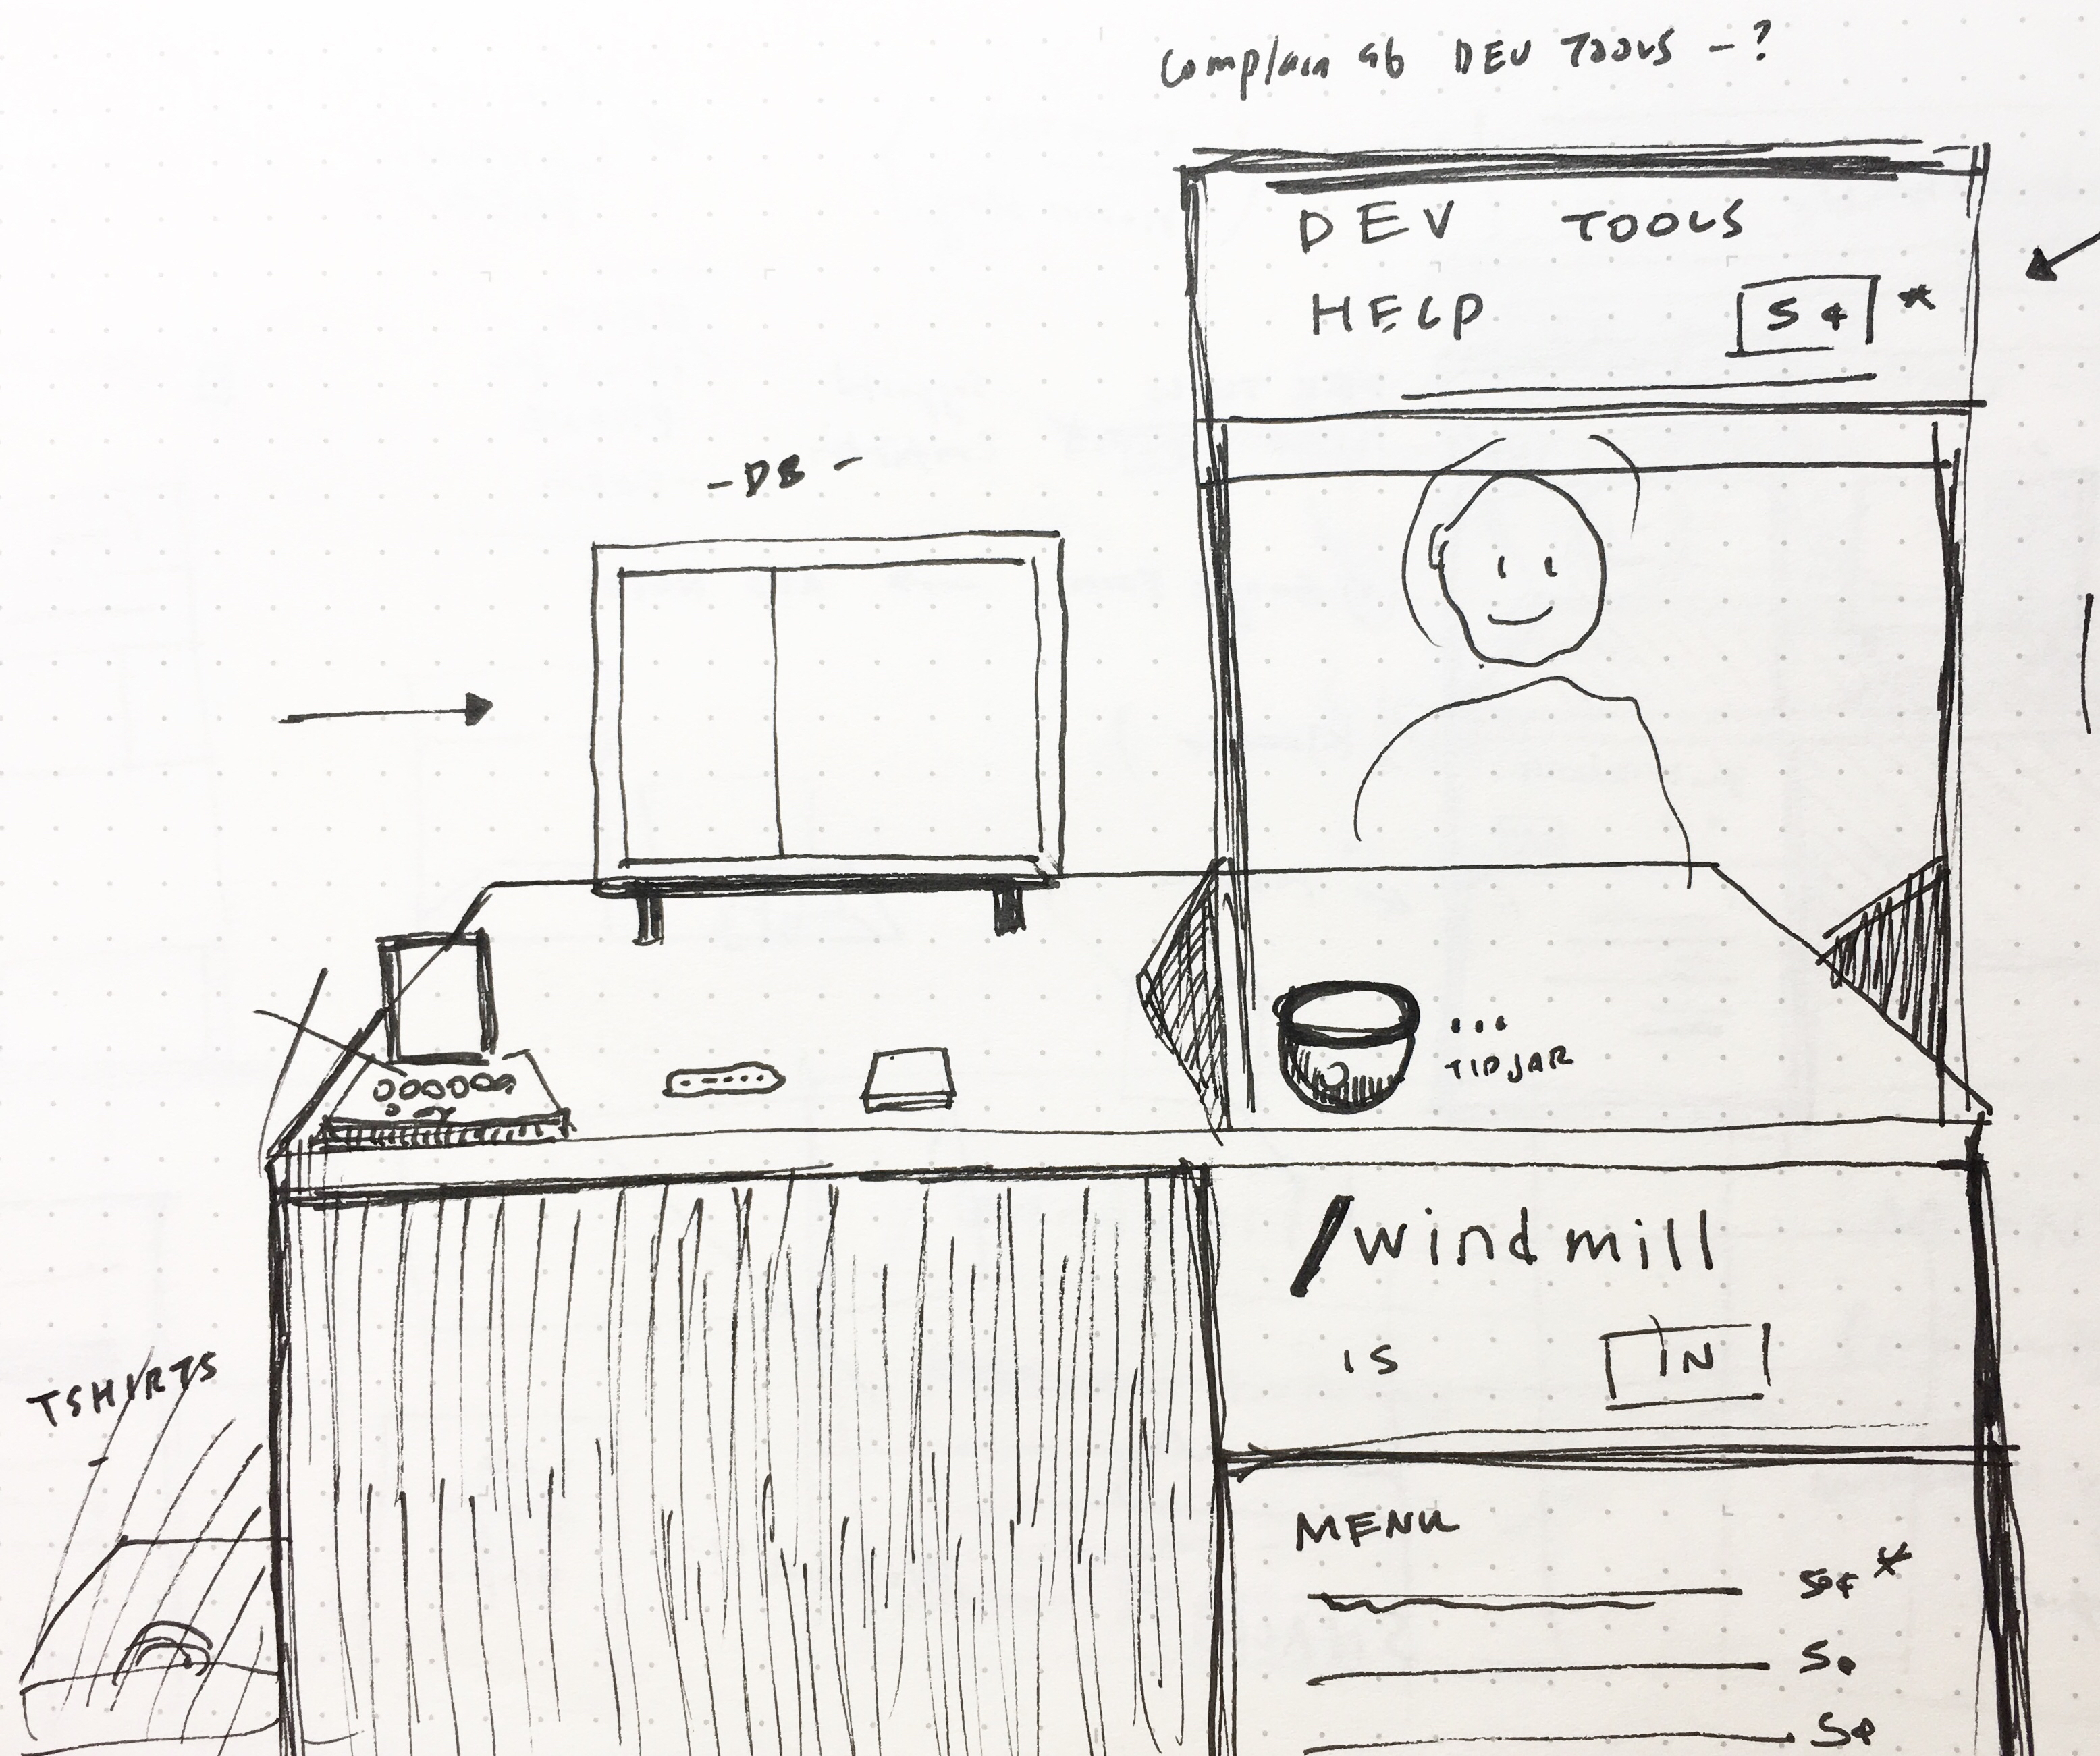 Complain ab DEV TOOLS - ?
DEV TOOLS
HELP 5¢ *
- DB -
... TIPJAR
/windmill
IS IN
TSHIRTS
MENU
50¢ *
5¢
5¢